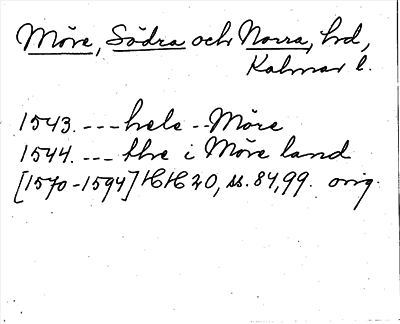 Möre, Södra och Norra, hd,
Kalmar l.
1543. --- hele -- Möre
1544. --- thre i Möre land
[1570-1594] HH 20, ss. 84, 99. orig.